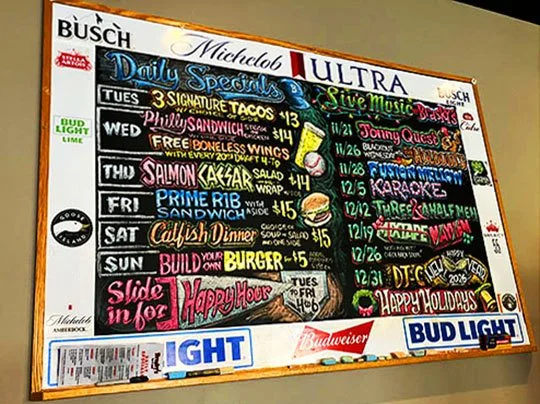 BUSCH
Michelob ULTRA
STELLA ARTOIS
BUSCH
LIGHT
BUD
LIGHT
LIME
GOOSE
ISLAND
Michelob
AMBERBOCK
Daily Specials
TUES 3 SIGNATURE TACOS $13
W/ CHOICE OF SIDE
WED Philly SANDWICH $14
FREE BONELESS WINGS
WITH EVERY 20oz DRAFT 4-7p
THU SALMON CAESAR SALAD
WRAP $14
FRI PRIME RIB
SANDWICH WITH
A SIDE $15
SAT Catfish Dinner CHOICE OF
SOUP or SALAD
AND ONE SIDE $15
SUN BUILD YOUR
OWN BURGER for $5
Slide
in for Happy Hour TUES
TO FRI
4 to 6
Live Music
11/21 Jonny Quest
11/26 BLACKOUT
WEDNESDAY
11/28 FUSION MELLOW
12/5 KARAOKE
12/12 THREE & A HALF MEN
12/19 MIXTAPE MAYHEM
12/26
12/31 DTC HAPPY
NEW YEAR
2026
HAPPY HOLIDAYS
IGHT
Budweiser
BUD LIGHT